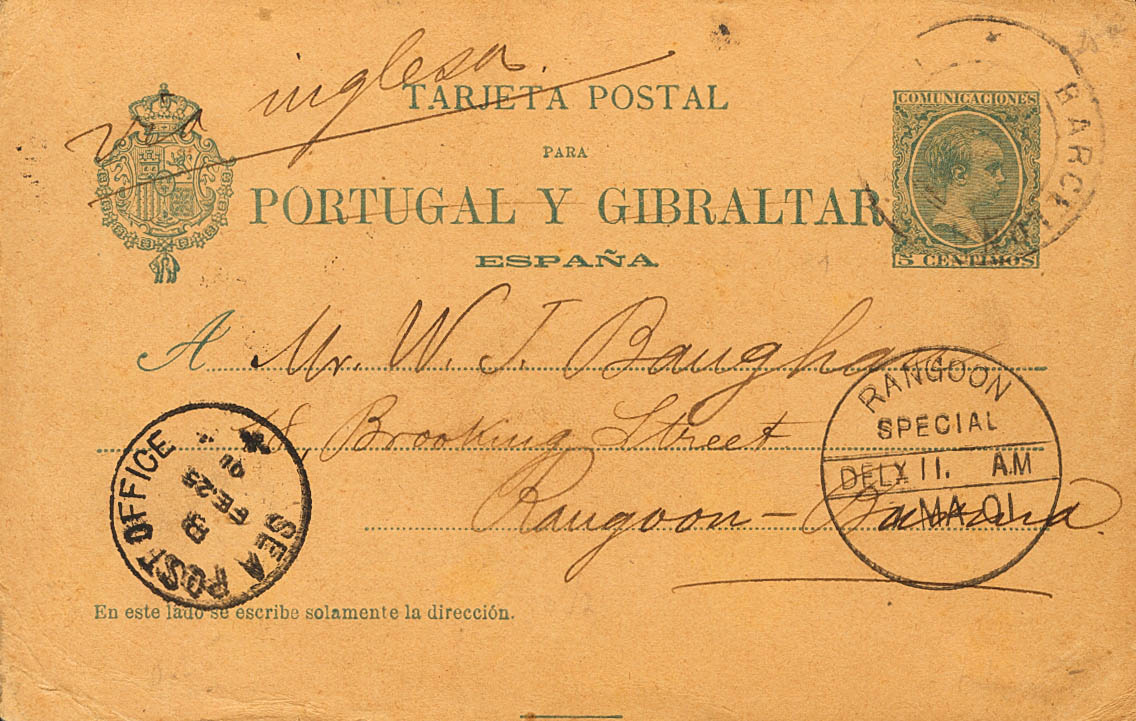 via inglesa.
TARJETA POSTAL
PARA
PORTUGAL Y GIBRALTAR
ESPAÑA
COMUNICACIONES
5 CENTIMOS
BARCELONA
A Mr. W. J. Baugham
68, Brooking Street
Rangoon -
RANGOON
SPECIAL
DELY 11. AM
MA 01
SEA POST OFFICE
B
FE 25
01
En este lado se escribe solamente la dirección.